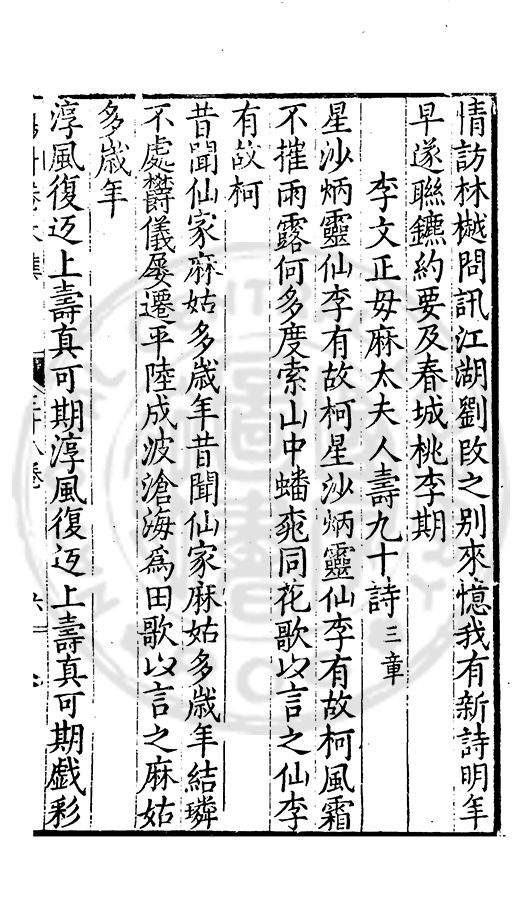 情訪林樾問訊江湖劉改之别來憶我有新詩明年
早遂聯鑣約要及春城桃李期
李文正母麻太夫人壽九十詩三章
星沙炳靈仙李有故柯星沙炳靈仙李有故柯風霜
不摧雨露何多度索山中蟠兖同花歌以言之仙李
有故柯
昔聞仙家麻姑多歲年昔聞仙家麻姑多歲年結璘
不處欝儀屡遷平陸成波滄海為田歌以言之麻姑
多歲年
淳風復迈上壽真可期淳風復迈上壽真可期戲彩